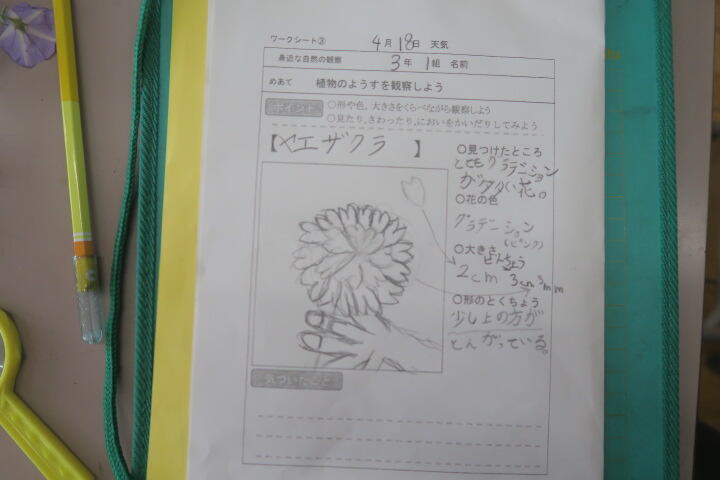 ワークシート③
4月18日 天気
身近な自然の観察 3年 1組 名前
めあて 植物のようすを観察しよう
ポイント ○形や色、大きさをくらべながら観察しよう
○見たり、さわったり、においをかいだりしてみよう
【ヤエザクラ 】
○見つけたところ
とてもグラデーション
が 花。
○花の色
グラデーション
(ピンク)
○大きさ ぜんちょう
2cm 3cm5mm
○形のとくちょう
少し上の方が
とんがっている。
気づいたこと